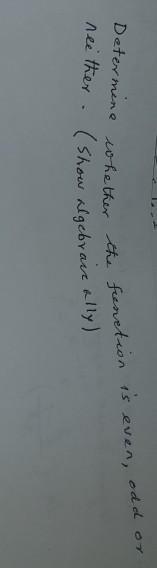 Determine whether the function is even, odd or
neither. (Show algebraically)